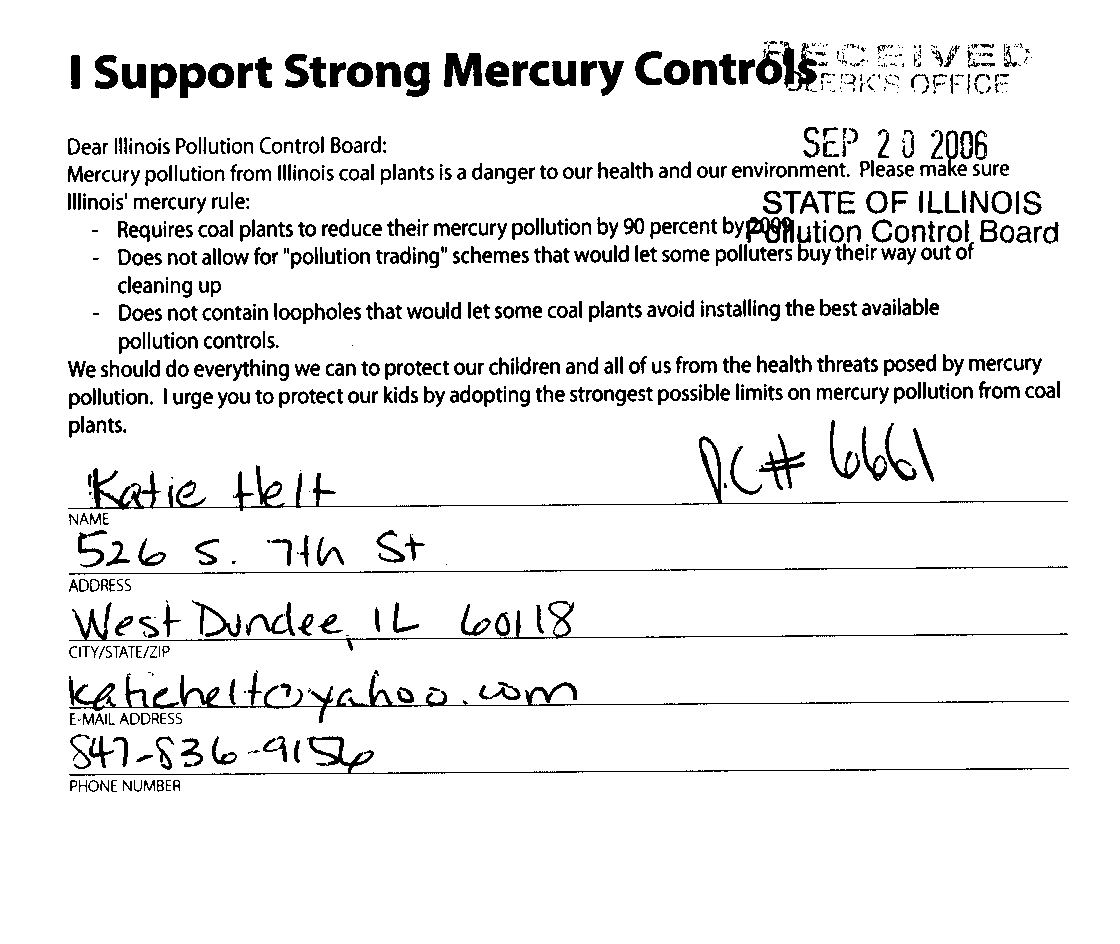 I Support Strong Mercury Controls
RECEIVED
CLERK'S OFFICE
SEP 20 2006
STATE OF ILLINOIS
Pollution Control Board
Dear Illinois Pollution Control Board:
Mercury pollution from Illinois coal plants is a danger to our health and our environment. Please make sure
Illinois' mercury rule:
- Requires coal plants to reduce their mercury pollution by 90 percent by
- Does not allow for "pollution trading" schemes that would let some polluters buy their way out of
cleaning up
- Does not contain loopholes that would let some coal plants avoid installing the best available
pollution controls.
We should do everything we can to protect our children and all of us from the health threats posed by mercury
pollution. I urge you to protect our kids by adopting the strongest possible limits on mercury pollution from coal
plants.
P.C# 6661
Katie Helt
NAME
526 S. 7th St
ADDRESS
West Dundee, IL 60118
CITY/STATE/ZIP
katiehelt@yahoo.com
E-MAIL ADDRESS
847-836-9156
PHONE NUMBER